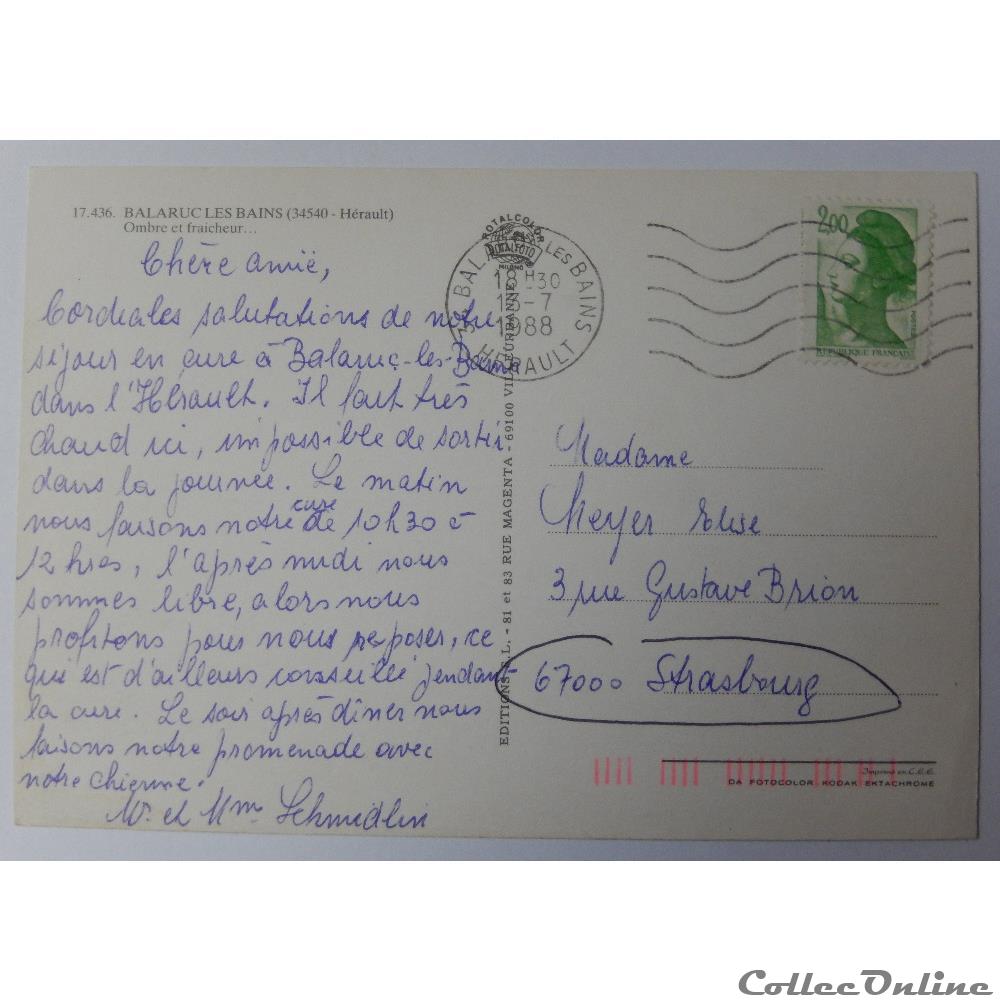 17.436. BALARUC LES BAINS (34540 - Hérault)
Ombre et fraicheur...
Chère amie,
Cordiales salutations de notre
séjour en cure à Balaruc-les-Bains
dans l'Hérault. Il fait très
chaud ici, impossible de sortir
dans la journée. Le matin
nous faisons notre cure de 10h30 à
12 hres, l'après midi nous
sommes libre, alors nous
profitons pour nous reposer, ce
qui est d'ailleurs conseillé pendant
la cure. Le soir après dîner nous
faisons notre promenade avec
notre chienne.
Mr et Mme Schmidlin
ROTALCOLOR
ROTALFOTO
MILANO
EDITIONS S.L. - 81 et 83 RUE MAGENTA - 69100 VILLEURBANNE
34 BALARUC LES BAINS
18H30
1988
HERAULT
2,00
POSTES
REPUBLIQUE FRANÇAISE
Madame
Meyer Elise
3 rue Gustave Brion
67000 Strasbourg
Imprimé en C.E.E.
DA FOTOCOLOR KODAK EKTACHROME
CollecOnline